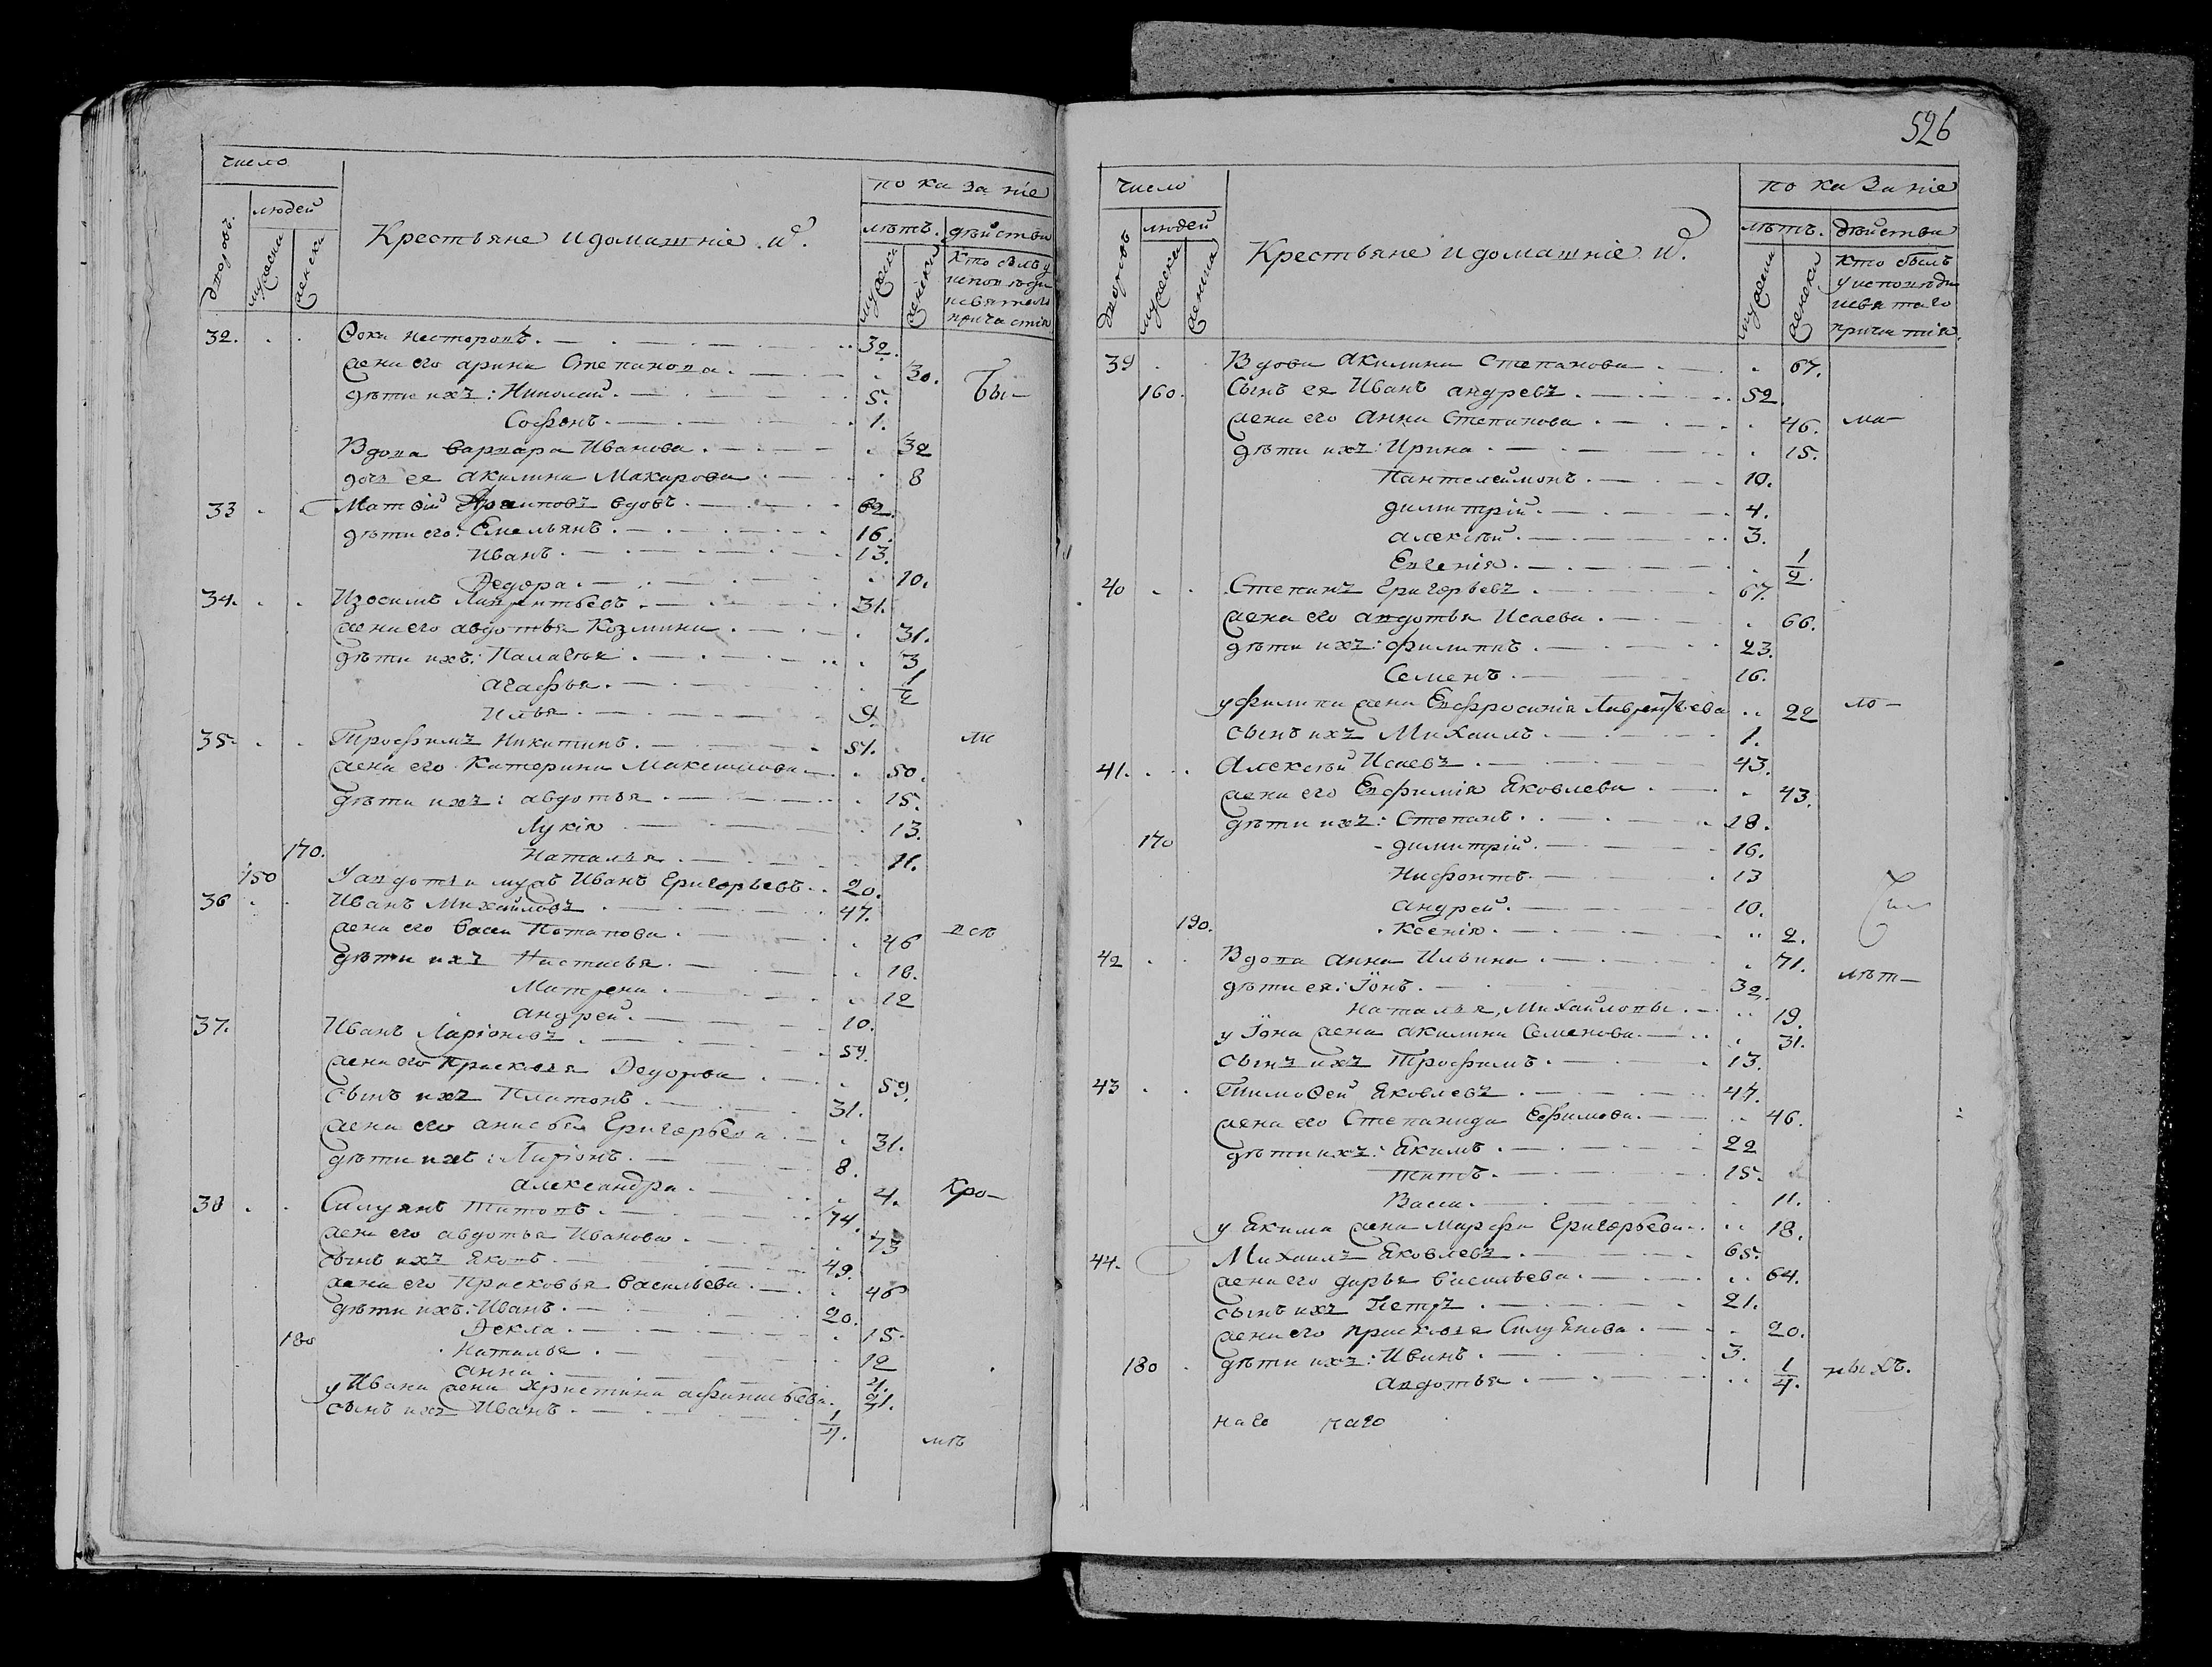 число
людей
дворовъ.
мужска
женска
Крестьяне и домашніе. ихъ.
показаніе
лѣтъ.
дѣйства
мужска
женска
кто былъ у
исповѣди
и святаго
причастія
32. Фока Несторовъ. 32.
жена его арина Степанова. 30.
дѣти ихъ: Николай. 5. Бы-
Софонъ. 1.
Вдова варвара Иванова. 32
дочь ея акилина Макарова 8
33 Матѳій вдовъ. 62.
дѣти его: Емельянъ. 16.
Иванъ. 13.
Ѳедора. 10.
34. Изосимъ Лаврентьевъ. 31.
жена его авдотья Козмина. 31.
дѣти ихъ: Палагѣя. 3
агафья. 1/2
Илья. 9.
35. Трофимъ Никитинъ. 51. ли
жена его Катерина Максимова 50.
дѣти ихъ: авдотья. 15.
Лукія 13.
170. Наталья. 11.
150 У авдотьи мужъ Иванъ Григорьевъ. 20.
36 Иванъ Михайловъ 47.
жена его Васса Потапова. 46 всѣ
дѣти ихъ Настасья. 18.
Матрена. 12
андрей. 10.
37. Иванъ Ларіоновъ. 59.
жена его Прасковья Ѳедорова 59.
сынъ ихъ Платонъ. 31.
жена его анисья Григорьева. 31.
дѣти ихъ: Ларіонъ. 8.
александра. 4. Кро-
38 Силуянъ Титовъ. 74.
жена его авдотья Иванова. 73
сынъ ихъ Яковъ. 49.
жена его Прасковья Васильева. 46
дѣти ихъ: Иванъ. 20.
Ѳекла. 15.
180 Наталья. 12
анна. 4.
у Ивана жена Христина афанасьева. 21.
сынъ ихъ Иванъ. 1/4.
мѣ
526
число
людей
дворовъ
мужска
женска
Крестьяне и домашніе ихъ.
показаніе
лѣтъ.
дѣйства
мужска
женска
кто былъ
у исповѣди
и святаго
причастія.
39 Вдова акилина Степанова 67.
160. Сынъ ея Иванъ андреевъ. 52.
жена его анна Степанова. 46. ма-
дѣти ихъ: Ирина. 15.
Пантелеймонъ. 10.
димитрій. 4.
алексѣй. 3.
Евгенія. 1/2.
40 Степанъ Григорьевъ. 67.
жена его авдотья Исаева. 66.
дѣти ихъ: филиппъ. 23.
Семенъ. 16.
у филипа жена Евфросинія Лаврентьева 22 ло-
сынъ ихъ Михаилъ. 1.
41. Алексѣй Исаевъ. 43.
жена его Евфимія Яковлева 43.
дѣти ихъ: Степанъ. 18.
170 димитрій. 16.
Нифонтъ. 13
андрей. 10.
190. Ксенія. 2.
42 Вдова анна Ильина. 71.
дѣти ея: Іонъ. 32. лѣт-
Наталья, Михайловы. 19.
у Іона жена акилина Семенова. 31.
сынъ ихъ Трофимъ. 13.
43 Тимоѳей Яковлевъ. 47.
жена его Степанида Ефимова. 46.
дѣти ихъ: Якимъ. 22
Титъ. 15.
Васса. 11.
у Якима жена Марфа Григорьева. 18.
44. Михаилъ Яковлевъ. 65.
жена его дарья Васильева. 64.
сынъ ихъ Петръ. 21.
жена его прасковья Силуянова. 20.
180 дѣти ихъ: Иванъ. 3.
авдотья. 1/4. ныхъ.